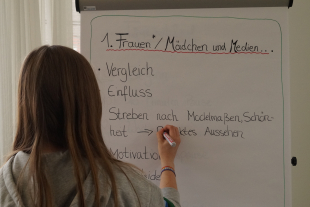 1. Frauen*/Mädchen und Medien...
• Vergleich
Einfluss
Streben nach Modelmaßen, Schön-
heit → Aussehen
Motivation